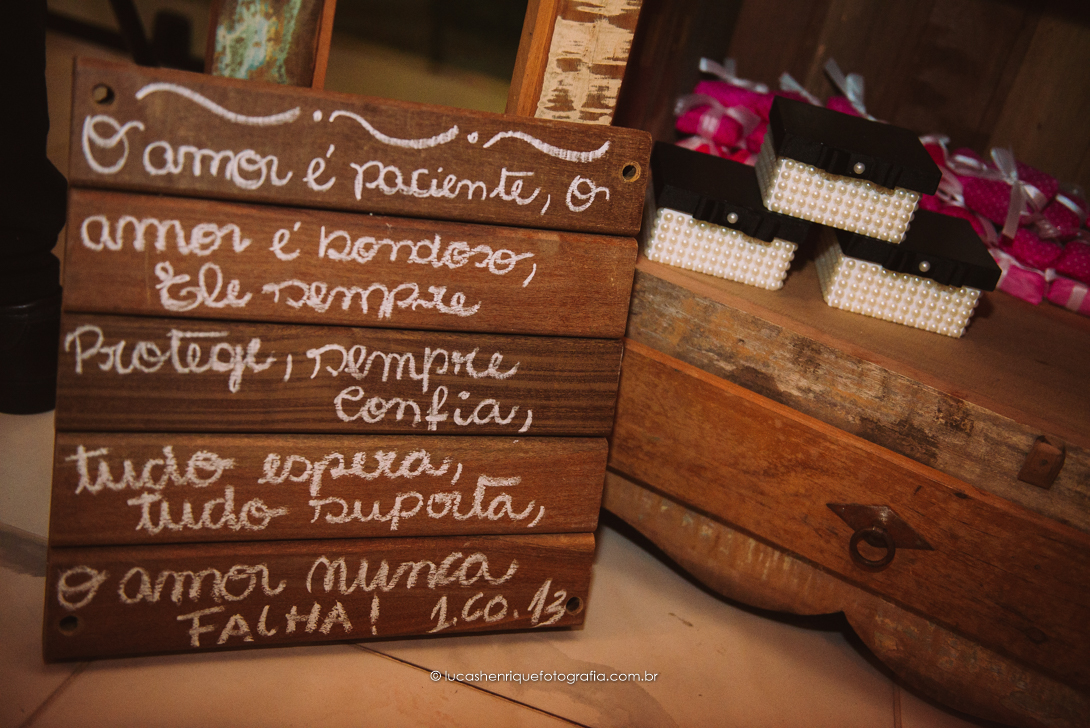 O amor é paciente, o
amor é bondoso,
Ele sempre
Protege, sempre
Confia,
tudo espera,
tudo suporta,
o amor nunca
FALHA! 1.CO.13
© lucashenriquefotografia.com.br